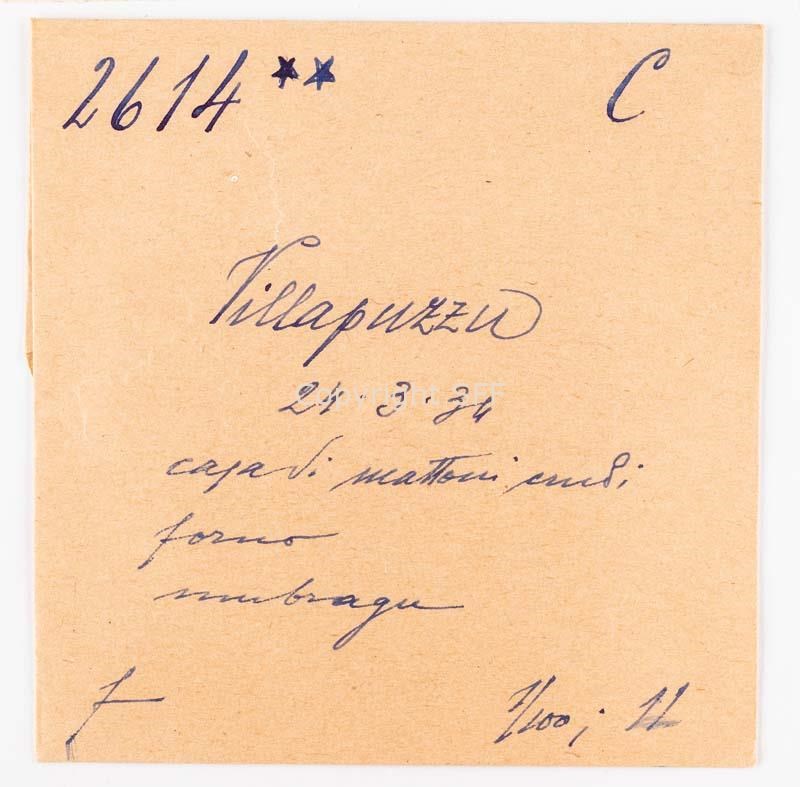 2614 ** C
Villapuzzu
24 3·34
Copyright
casa di mattoni crudi
forno
umbragu
f
1/100; 11